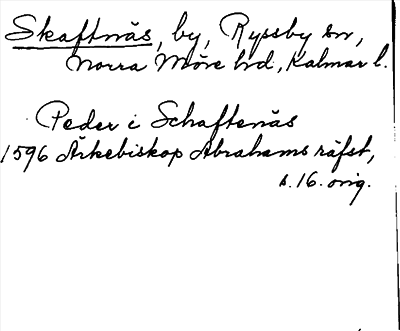 Skaftnäs, by, Ryssby sn,
Norra Möre hd, Kalmar l.
Peder i Schaftenäs
1596 Ärkebiskop Abrahams räfst,
s. 16. orig.